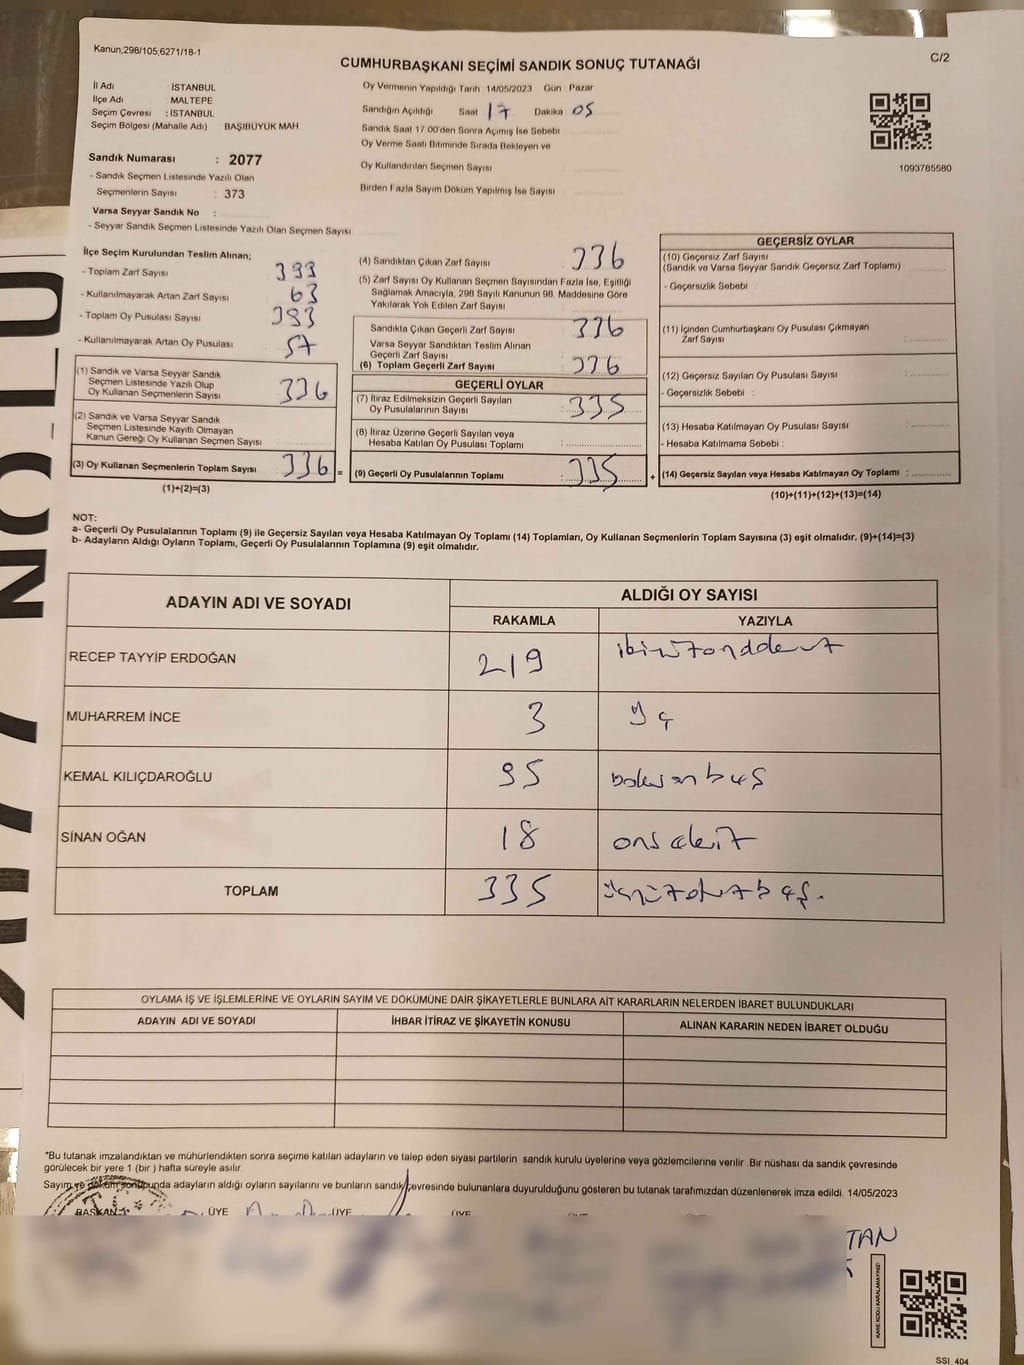 Kanun,298/105,6271/18-1
C/2
CUMHURBAŞKANI SEÇİMİ SANDIK SONUÇ TUTANAĞI
İl Adı : İSTANBUL
İlçe Adı : MALTEPE
Seçim Çevresi : İSTANBUL
Seçim Bölgesi (Mahalle Adı) BAŞIBÜYÜK MAH
Oy Vermenin Yapıldığı Tarih 14/05/2023 Gün Pazar
Sandığın Açıldığı Saat 17 Dakika 05
Sandık Saat 17 00'den Sonra Açımış İse Sebebi
Oy Verme Saati Bitiminde Sırada Bekleyen ve
Oy Kullandırılan Seçmen Sayısı
Birden Fazla Sayım Döküm Yapılmış İse Sayısı
1093785580
Sandık Numarası : 2077
- Sandık Seçmen Listesinde Yazılı Olan
Seçmenlerin Sayısı : 373
Varsa Seyyar Sandık No :
- Seyyar Sandık Seçmen Listesinde Yazılı Olan Seçmen Sayısı
İlçe Seçim Kurulundan Teslim Alınan;
- Toplam Zarf Sayısı 393
- Kullanılmayarak Artan Zarf Sayısı 63
- Toplam Oy Pusulası Sayısı 393
- Kullanılmayarak Artan Oy Pusulası 57
(1) Sandık ve Varsa Seyyar Sandık
Seçmen Listesinde Yazılı Olup
Oy Kullanan Seçmenlerin Sayısı 336
(2) Sandık ve Varsa Seyyar Sandık
Seçmen Listesinde Kayıtlı Olmayan
Kanun Gereği Oy Kullanan Seçmen Sayısı
(3) Oy Kullanan Seçmenlerin Toplam Sayısı 336 =
(1)+(2)=(3)
(4) Sandıktan Çıkan Zarf Sayısı 336
(5) Zarf Sayısı Oy Kullanan Seçmen Sayısından Fazla İse, Eşitliği
Sağlamak Amacıyla, 298 Sayılı Kanunun 98. Maddesine Göre
Yakılarak Yok Edilen Zarf Sayısı
Sandıkta Çıkan Geçerli Zarf Sayısı 336
Varsa Seyyar Sandıktan Teslim Alınan
Geçerli Zarf Sayısı
(6) Toplam Geçerli Zarf Sayısı 336
GEÇERLİ OYLAR
(7) İtiraz Edilmeksizin Geçerli Sayılan
Oy Pusulalarının Sayısı : 335
(8) İtiraz Üzerine Geçerli Sayılan veya
Hesaba Katılan Oy Pusulası Toplamı :
(9) Geçerli Oy Pusulalarının Toplamı : 335 +
GEÇERSİZ OYLAR
(10) Geçersiz Zarf Sayısı
(Sandık ve Varsa Seyyar Sandık Geçersiz Zarf Toplamı)
- Geçersizlik Sebebi
(11) İçinden Cumhurbaşkanı Oy Pusulası Çıkmayan
Zarf Sayısı
(12) Geçersiz Sayılan Oy Pusulası Sayısı
- Geçersizlik Sebebi :
(13) Hesaba Katılmayan Oy Pusulası Sayısı
- Hesaba Katılmama Sebebi :
(14) Geçersiz Sayılan veya Hesaba Katılmayan Oy Toplamı :
(10)+(11)+(12)+(13)=(14)
NOT:
a- Geçerli Oy Pusulalarının Toplamı (9) ile Geçersiz Sayılan veya Hesaba Katılmayan Oy Toplamı (14) Toplamları, Oy Kullanan Seçmenlerin Toplam Sayısına (3) eşit olmalıdır. (9)+(14)=(3)
b- Adayların Aldığı Oyların Toplamı, Geçerli Oy Pusulalarının Toplamına (9) eşit olmalıdır.
ADAYIN ADI VE SOYADI
ALDIĞI OY SAYISI
RAKAMLA YAZIYLA
RECEP TAYYİP ERDOĞAN 219
MUHARREM İNCE 3 üç
KEMAL KILIÇDAROĞLU 95 doksan beş
SİNAN OĞAN 18 onsekiz
TOPLAM 335 üçyüzotuzbeş.
OYLAMA İŞ VE İŞLEMLERİNE VE OYLARIN SAYIM VE DÖKÜMÜNE DAİR ŞİKAYETLERLE BUNLARA AİT KARARLARIN NELERDEN İBARET BULUNDUKLARI
ADAYIN ADI VE SOYADI İHBAR İTİRAZ VE ŞİKAYETİN KONUSU ALINAN KARARIN NEDEN İBARET OLDUĞU
*Bu tutanak imzalandıktan ve mühürlendikten sonra seçime katılan adayların ve talep eden siyasi partilerin sandık kurulu üyelerine veya gözlemcilerine verilir. Bir nüshası da sandık çevresinde
görülecek bir yere 1 (bir) hafta süreyle asılır.
Sayım ve döküm sonucunda adayların aldığı oyların sayılarını ve bunların sandık çevresinde bulunanlara duyurulduğunu gösteren bu tutanak tarafımızdan düzenlenerek imza edildi. 14/05/2023
BAŞKAN ÜYE ÜYE ÜYE
TAN
KARE KODU KARALAMAYINIZ!
SSI_404